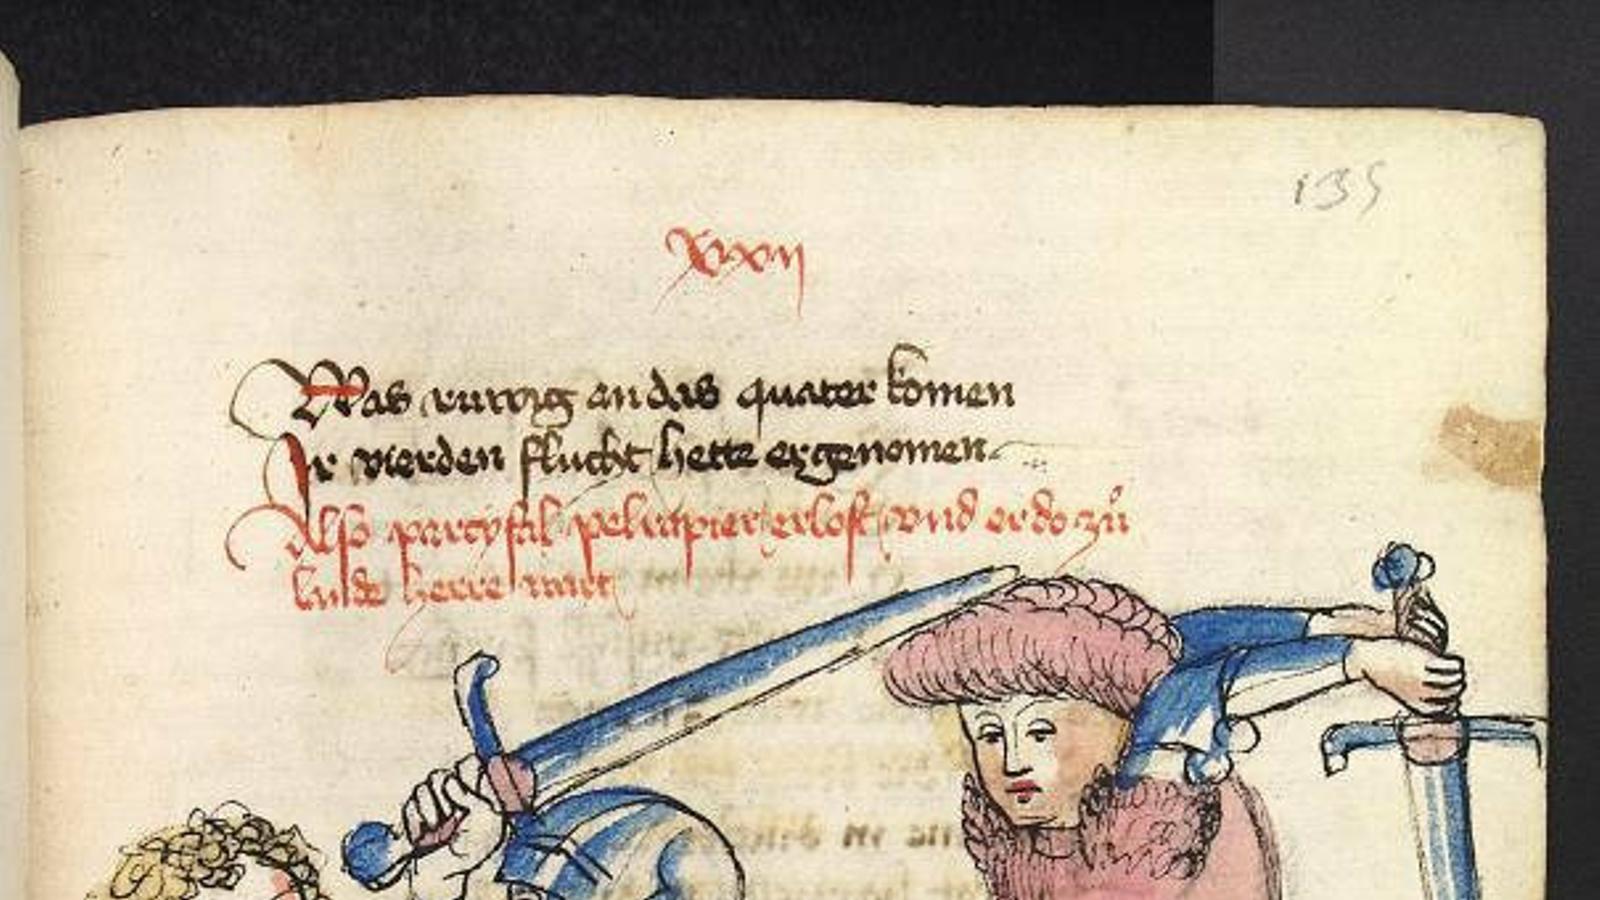 135
xxxii
Was rurig an das quater komen
Ir vierden flucht hette er genomen
Also parcyfal pelrapier erlost vnd er do zů
lande herre wart